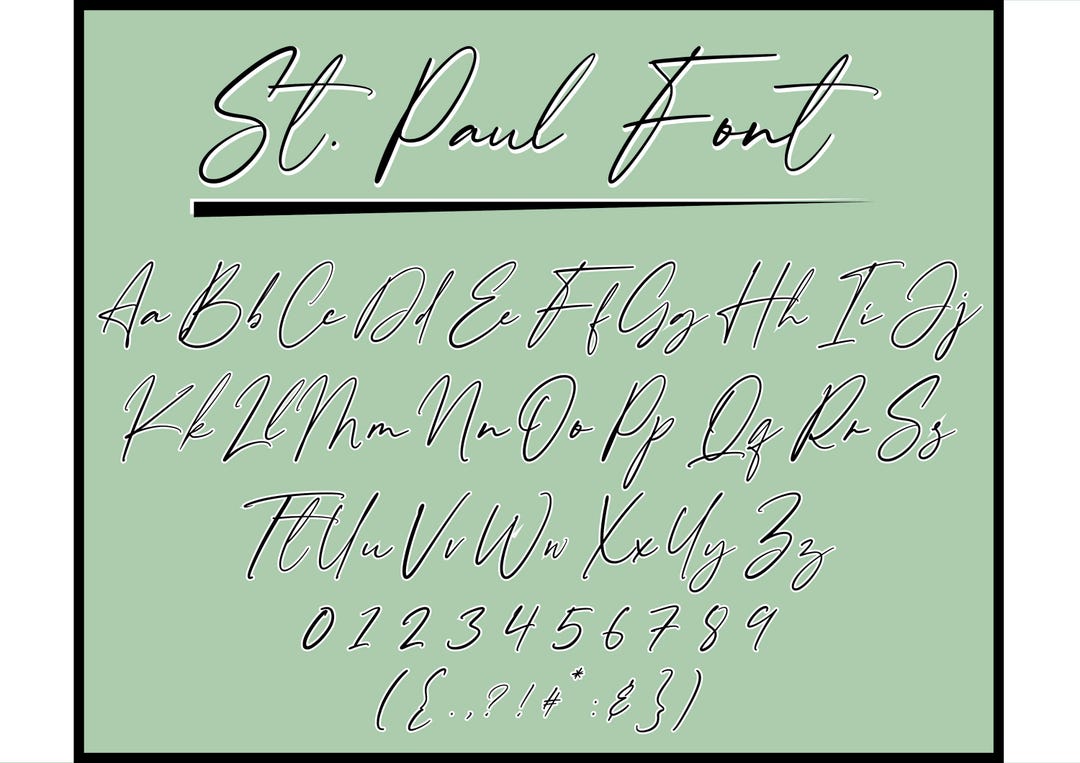 St. Paul Font
Aa Bb Cc Dd Ee Ff Gg Hh Ii Jj
Kk Ll Mm Nn Oo Pp Qq Rr Ss
Tt Uu Vv Ww Xx Yy Zz
0 1 2 3 4 5 6 7 8 9
( { . , ? ! # * : & } )